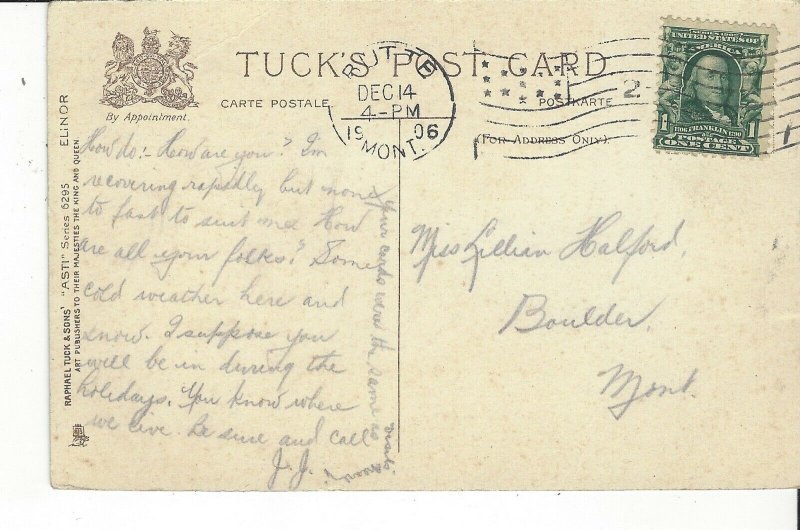 TUCK'S POST CARD
CARTE POSTALE
POSTKARTE
(FOR ADDRESS ONLY).
By Appointment.
BUTTE
DEC 14
4-PM
1906
MONT.
SERIES 1902
UNITED STATES OF
AMERICA
1706 FRANKLIN 1790
1 POSTAGE 1
ONE CENT
RAPHAEL TUCK & SONS' "ASTI" Series 6295 ELINOR
ART PUBLISHERS TO THEIR MAJESTIES THE KING AND QUEEN.
How do:- How are you? I'm
recovering rapidly but none
to fast to suit me. How
are all your folks? Some
cold weather here and
snow. I suppose you
will be in during the
holidays. You know where
we live. be sure and call
J.J.
Your cards were the same as
visits
Miss Lillian Halford,
Boulder,
Mont.